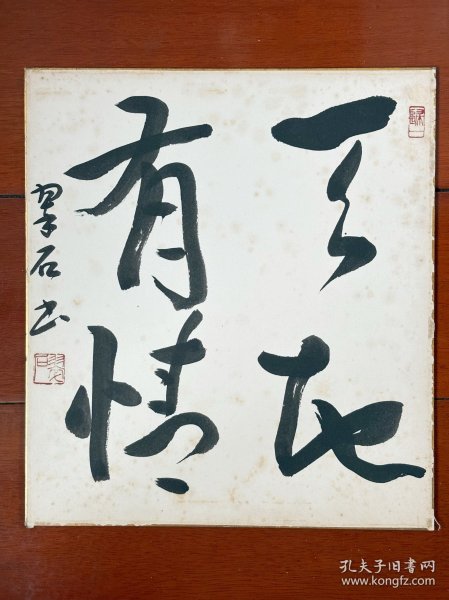 天地
有情
翠石書
孔夫子旧书网
www.kongfz.com